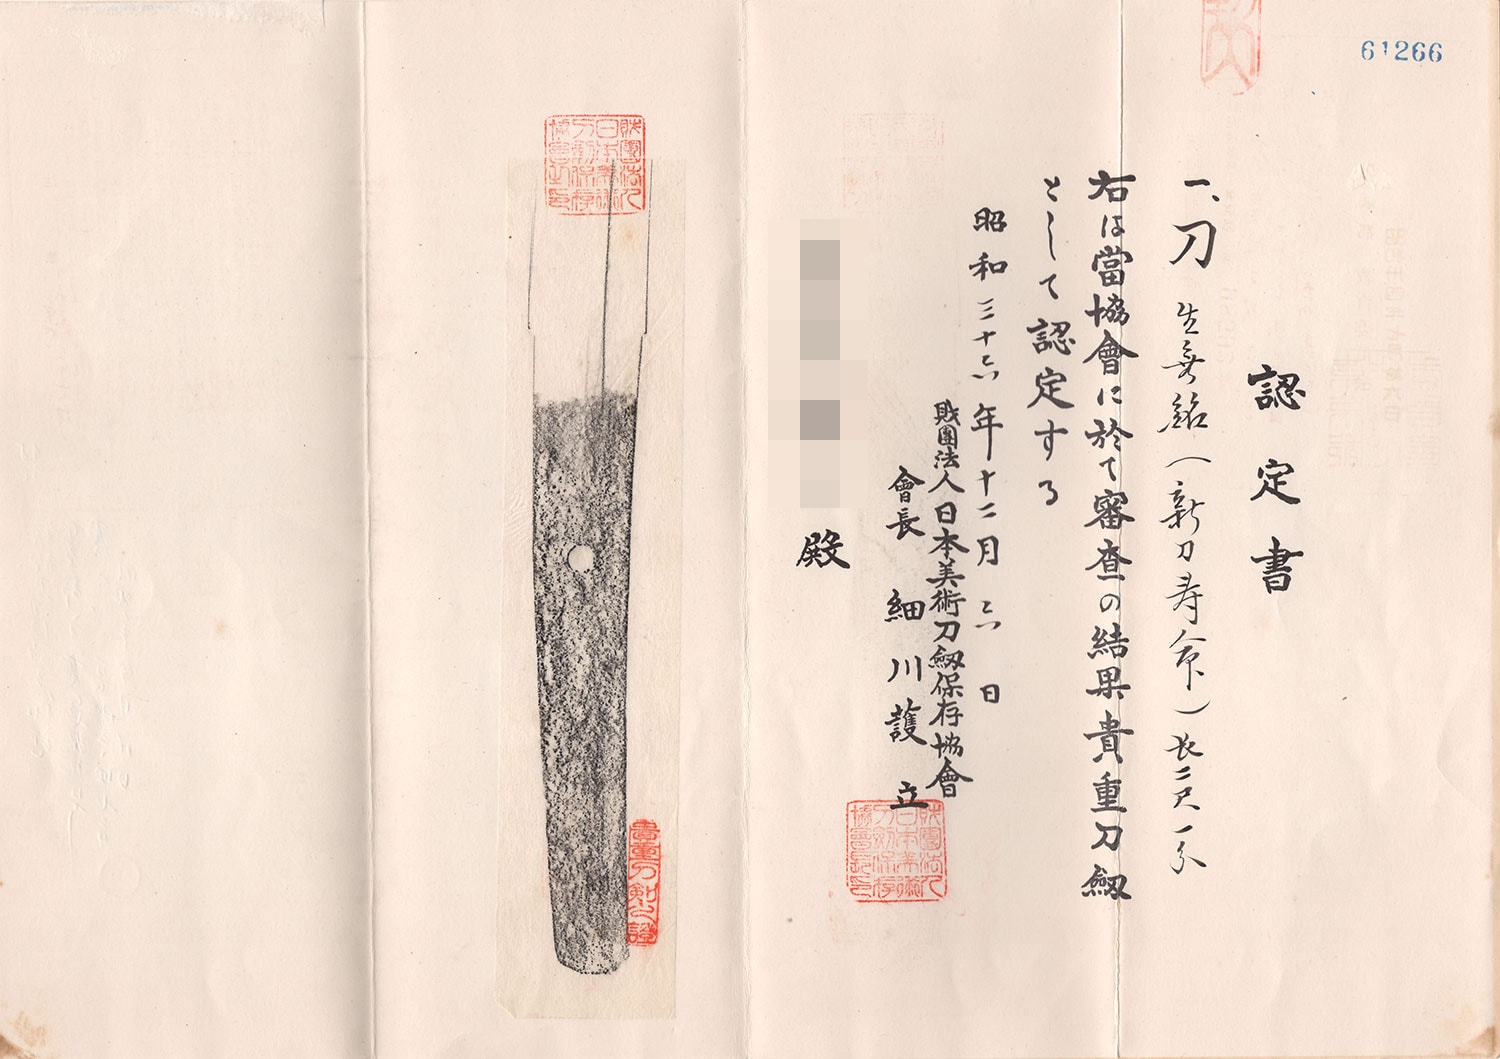 61266
認定書
一、刀 生無銘(新刀寿命)長二尺一分
右は當協會に於て審査の結果貴重刀劔
として認定する
昭和三十六年十二月六日
財團法人日本美術刀劔保存協會
會長 細川護立
殿
財團法人日本美術刀劍保存協會之印
財團法人日本美術刀劍保存協會長印
貴重刀剣之證